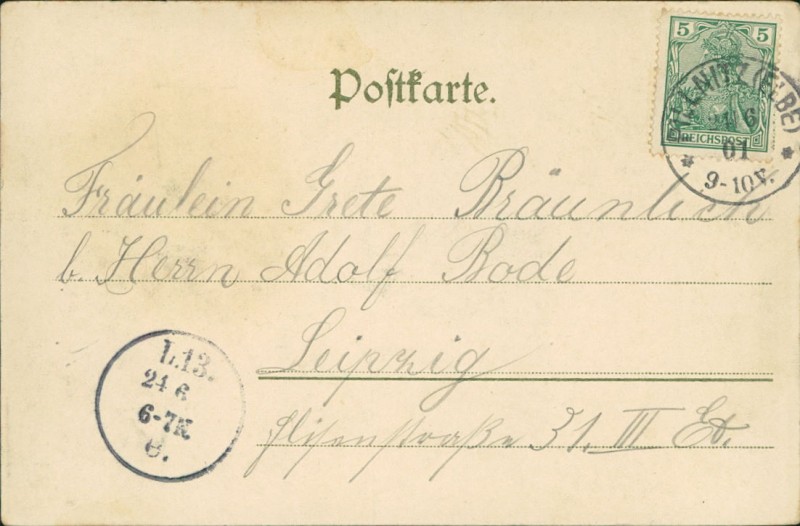 5 5
REICHSPOST
NITZ (ELBE)
6
01
9-10V.
Postkarte.
Fräulein Grete Bräunlich
b. Herrn Adolf Bode
Leipzig
Elisenstraße 31. III Et.
L.13.
24 6
6-7N.